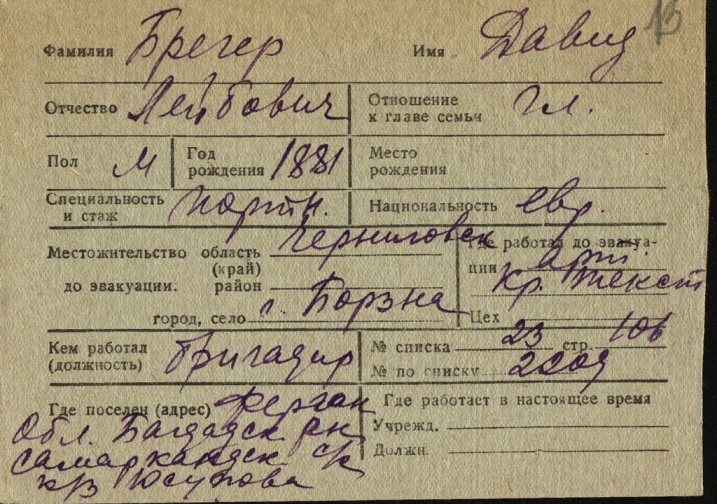 13
Фамилия Брегер Имя Давид
Отчество Лейбович Отношение к главе семьи Гл.
Пол М Год рождения 1881 Место рождения
Специальность и стаж Портн. Национальность евр.
Местожительство область Черниговск Где работал до эвакуа-
(край) ции арт.
до эвакуации. район Кр. Текст
город, село г. Борзна Цех
Кем работал (должность) бригадир № списка 23 стр. 106
№ по списку 2209
Где поселен (адрес) Ферган Где работает в настоящее время
Обл. Багдадск рн Учрежд.
Самаркандск с/с Должн.
к/з Юсупова